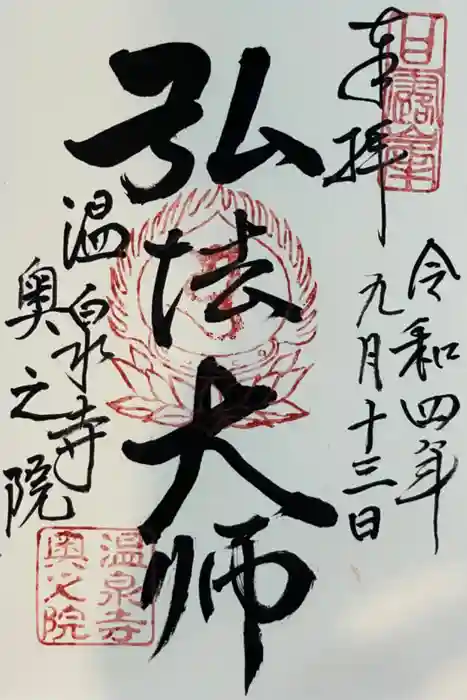 奉拝
令和四年
九月十三日
弘法大師
温泉寺
奥之院
温泉寺
奥之院